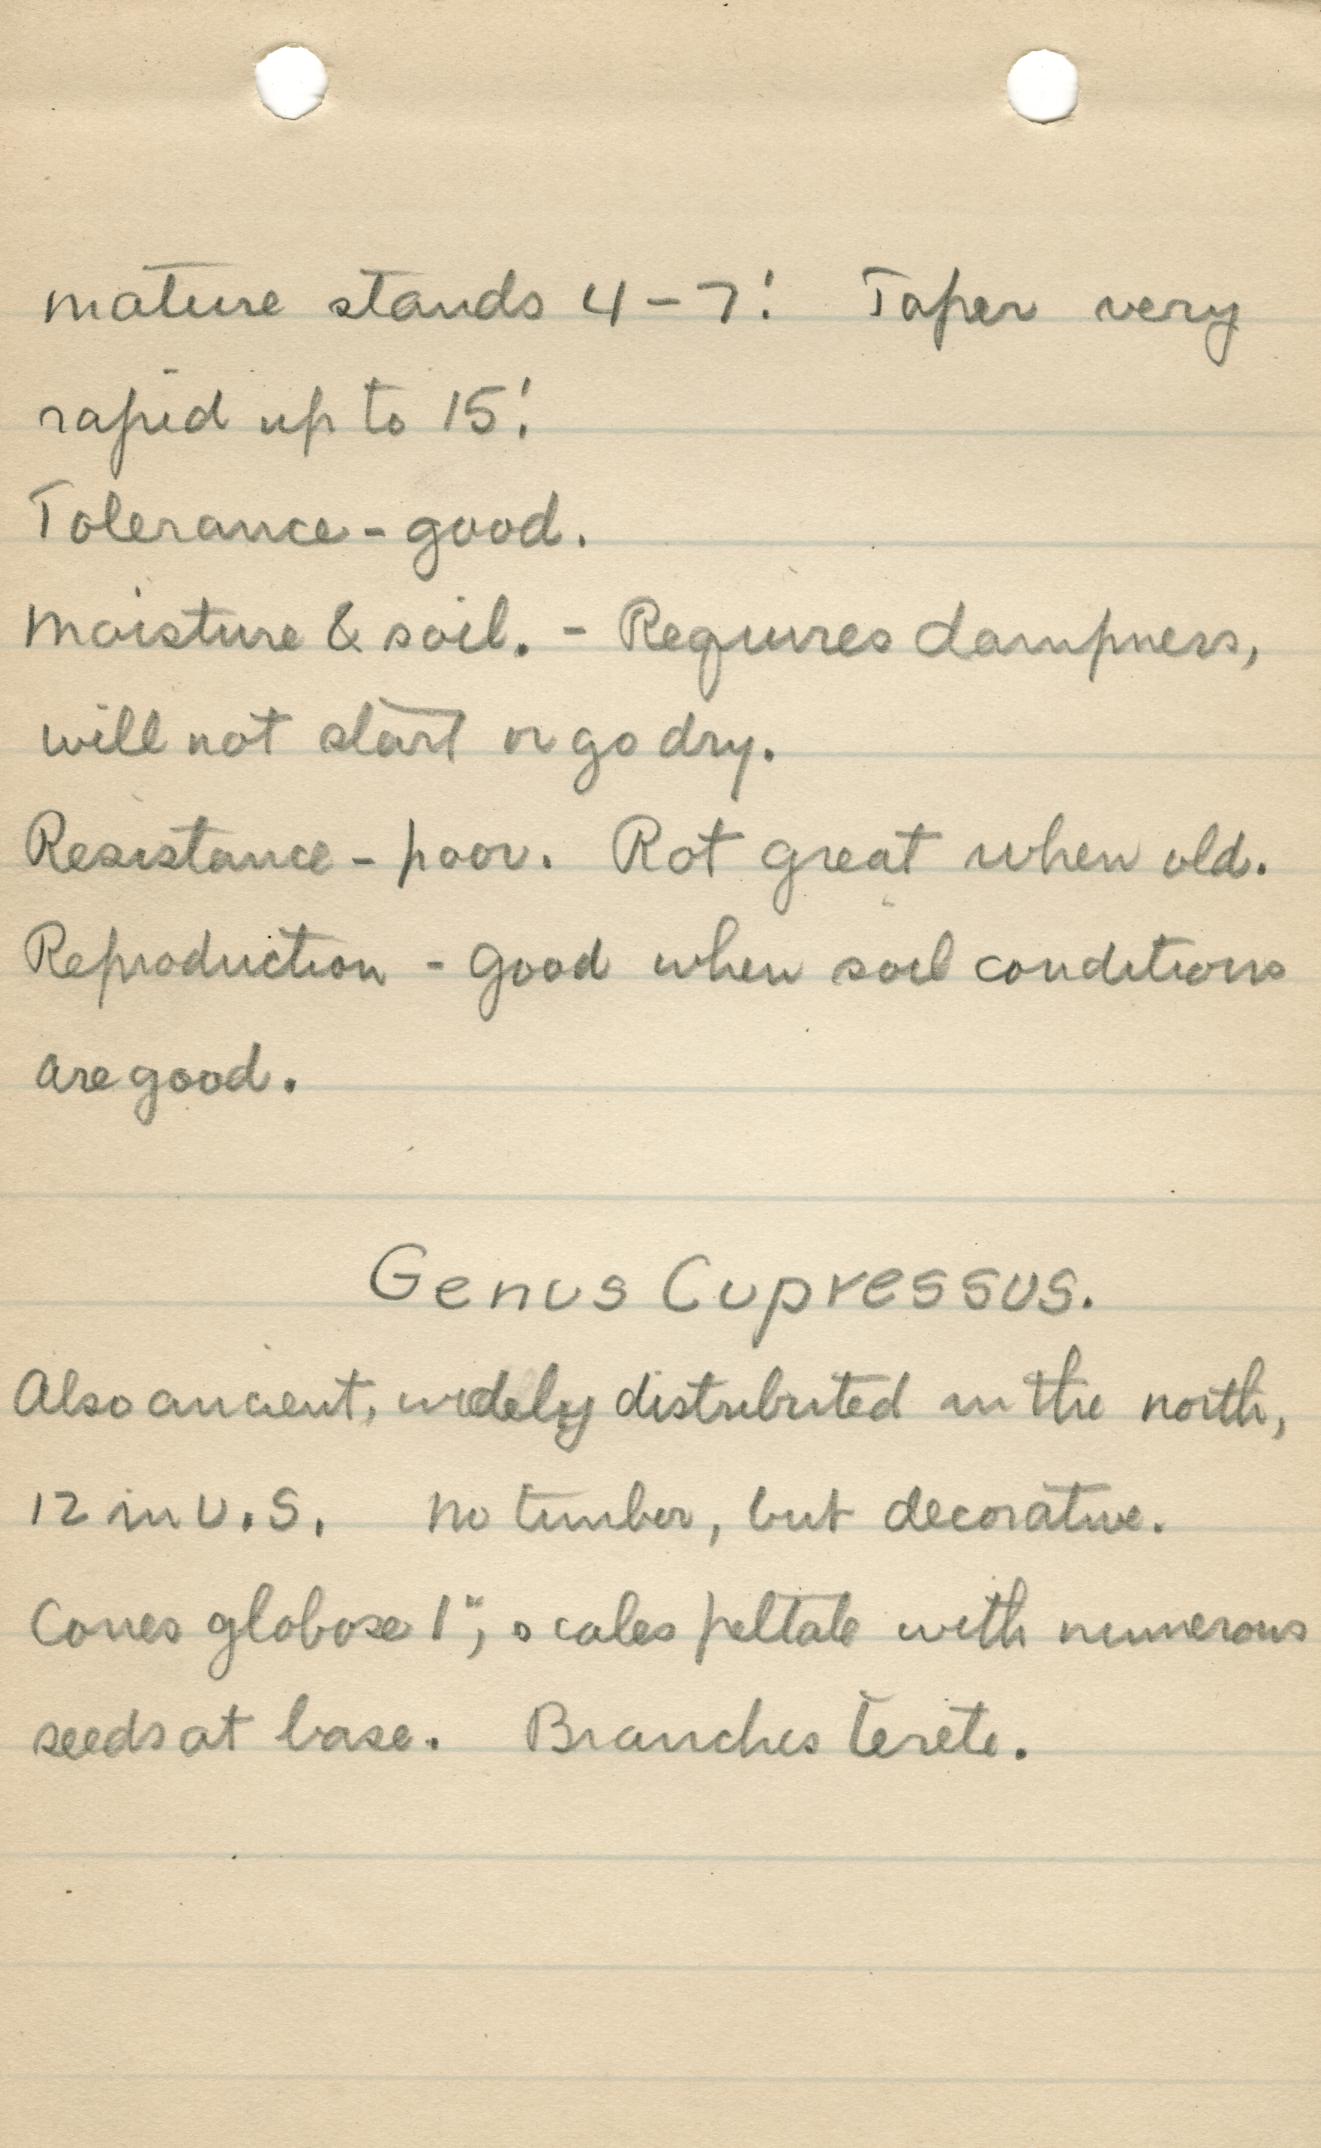 mature stands 4-7'. Taper very
rapid up to 15'.
Tolerance - good.
Moisture & soil. - Requires dampness,
will not start or go dry.
Resistance - poor. Rot great when old.
Reproduction - good when soil conditions
are good.
Genus Cupressus.
Also ancient, widely distributed in the north,
12 in U.S. No timber, but decorative.
Cones globose 1", scales peltate with numerous
seeds at base. Branches terete.